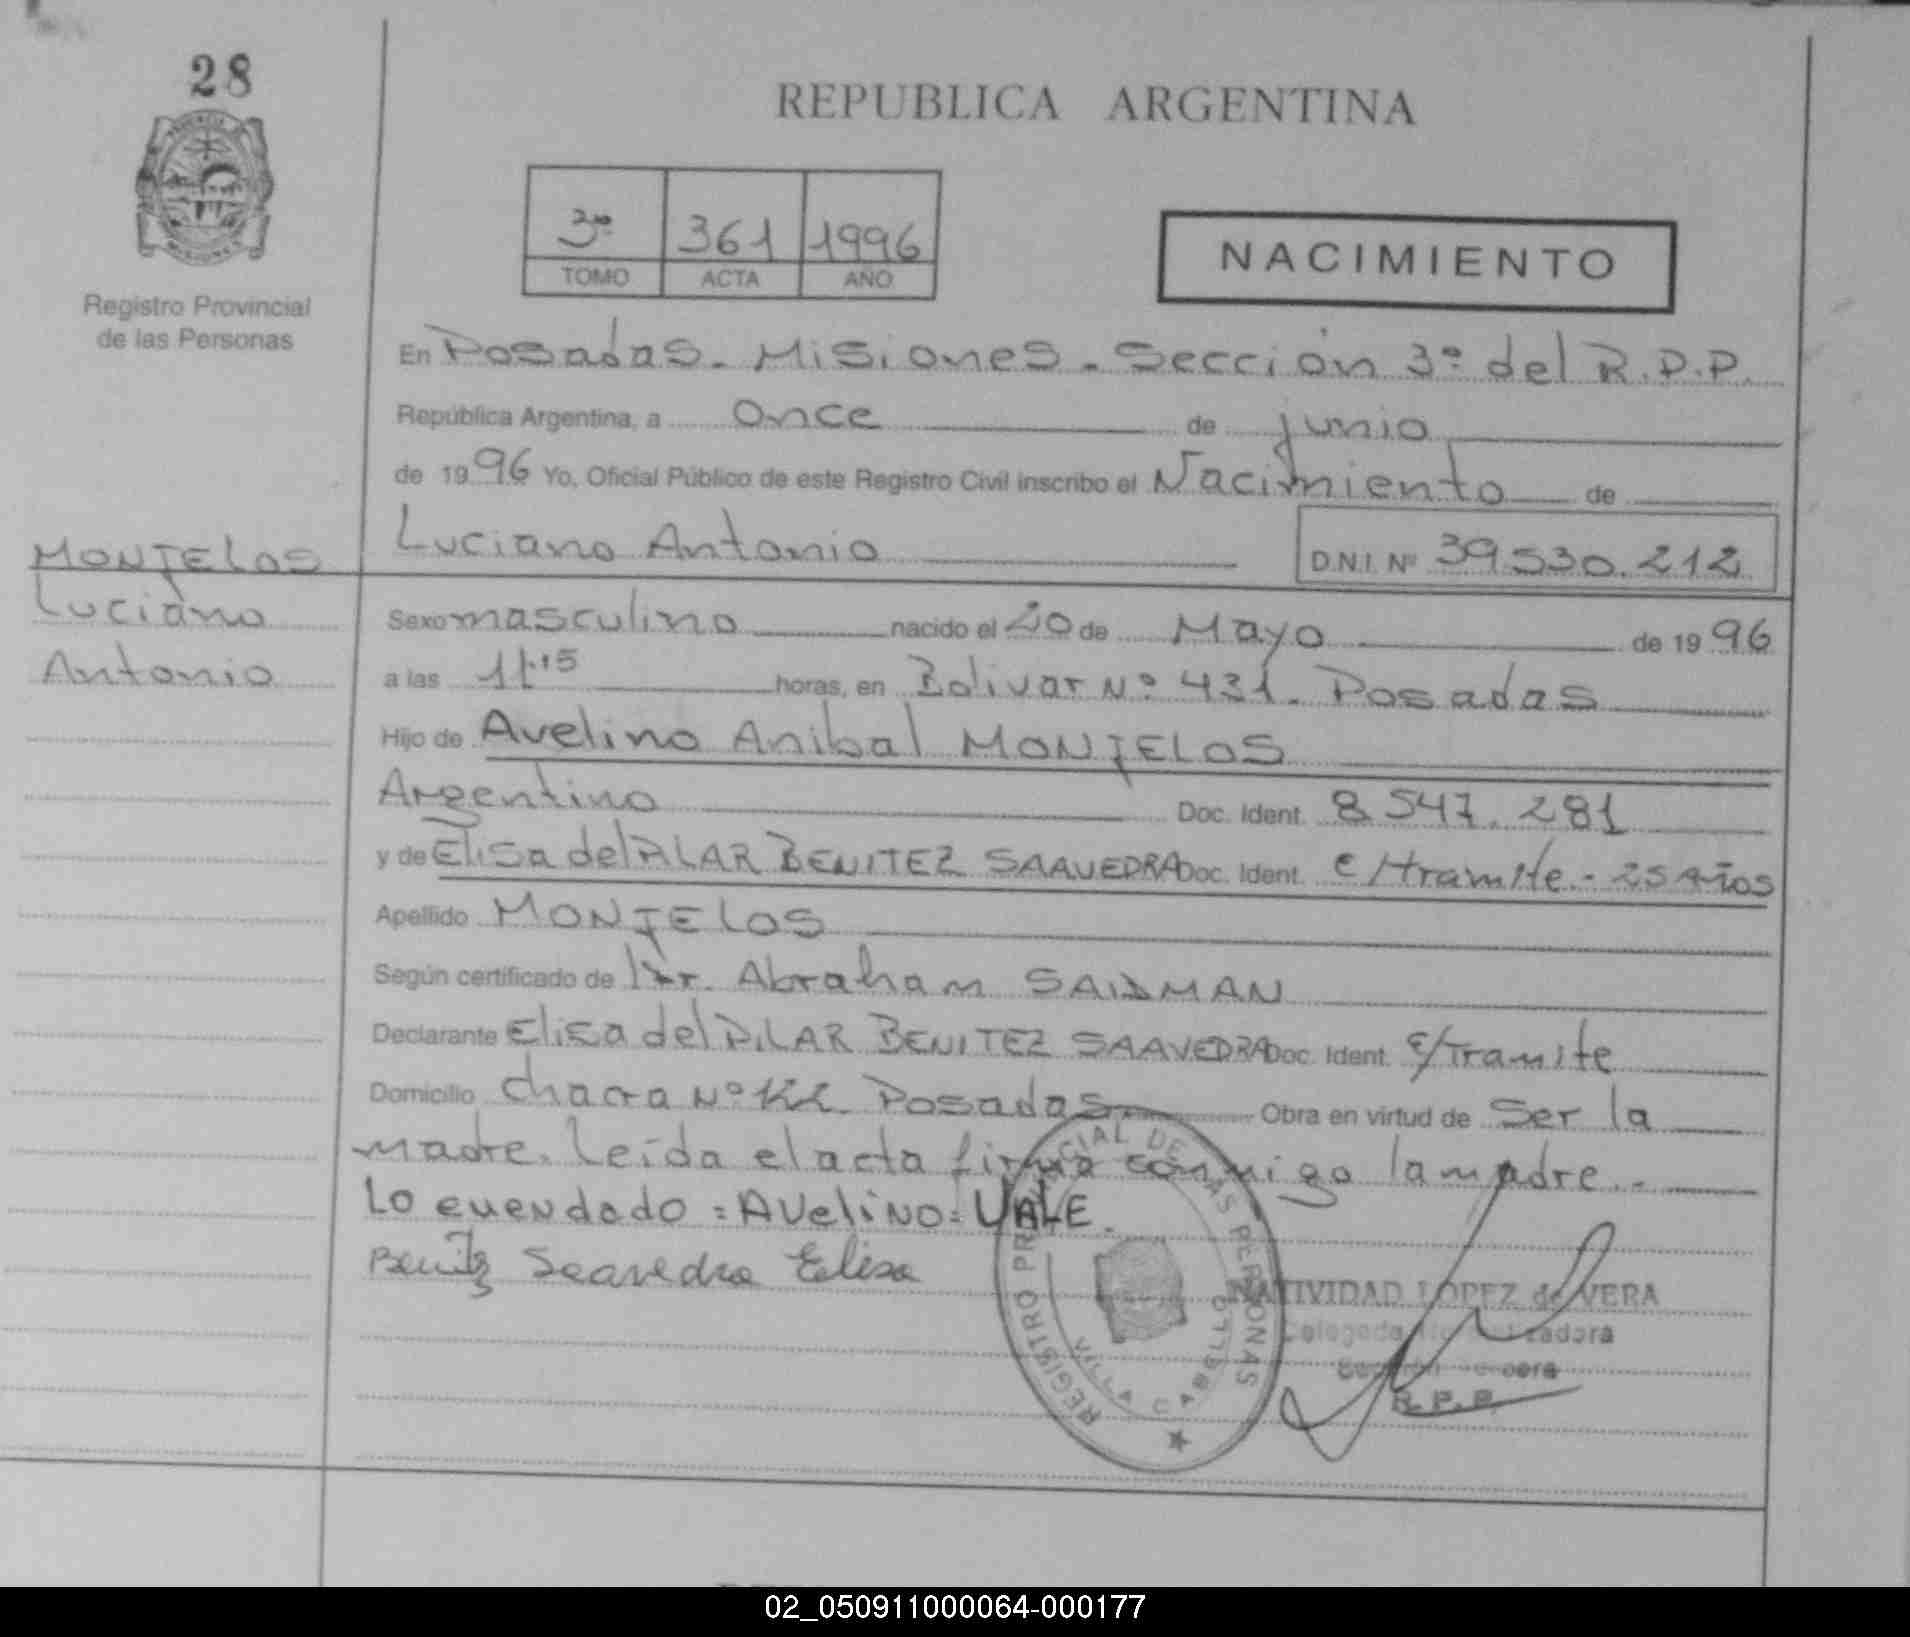 28
REPUBLICA ARGENTINA
3º 361 1996
TOMO ACTA AÑO
NACIMIENTO
Registro Provincial
de las Personas
En Posadas - Misiones - Sección 3º del R.P.P.
República Argentina, a once de junio
de 1996 Yo, Oficial Público de este Registro Civil inscribo el Nacimiento de
Luciano Antonio D.N.I. Nº 39.530.212
MONJELOS
Luciano
Antonio
Sexo masculino nacido el 20 de Mayo de 1996
a las 11:15 horas, en Bolivar Nº 431 - Posadas
Hijo de Avelino Anibal MONJELOS
Argentino Doc. Ident. 8.547.281
y de Elisa del PILAR BENITEZ SAAVEDRA Doc. Ident. e/tramite - 25 años
Apellido MONJELOS
Según certificado de Dr. Abraham SAIDMAN
Declarante Elisa del PILAR BENITEZ SAAVEDRA Doc. Ident. e/Tramite
Domicilio Chacra Nº Posadas Obra en virtud de Ser la
madre. Leída el acta firma conmigo la madre.-
Lo enmendado = Avelino = VALE.
Benitez Saavedra Elisa
REGISTRO PROVINCIAL DE LAS PERSONAS
VILLA CABELLO
NATIVIDAD LOPEZ de VERA
R.P.P.
02_050911000064-000177